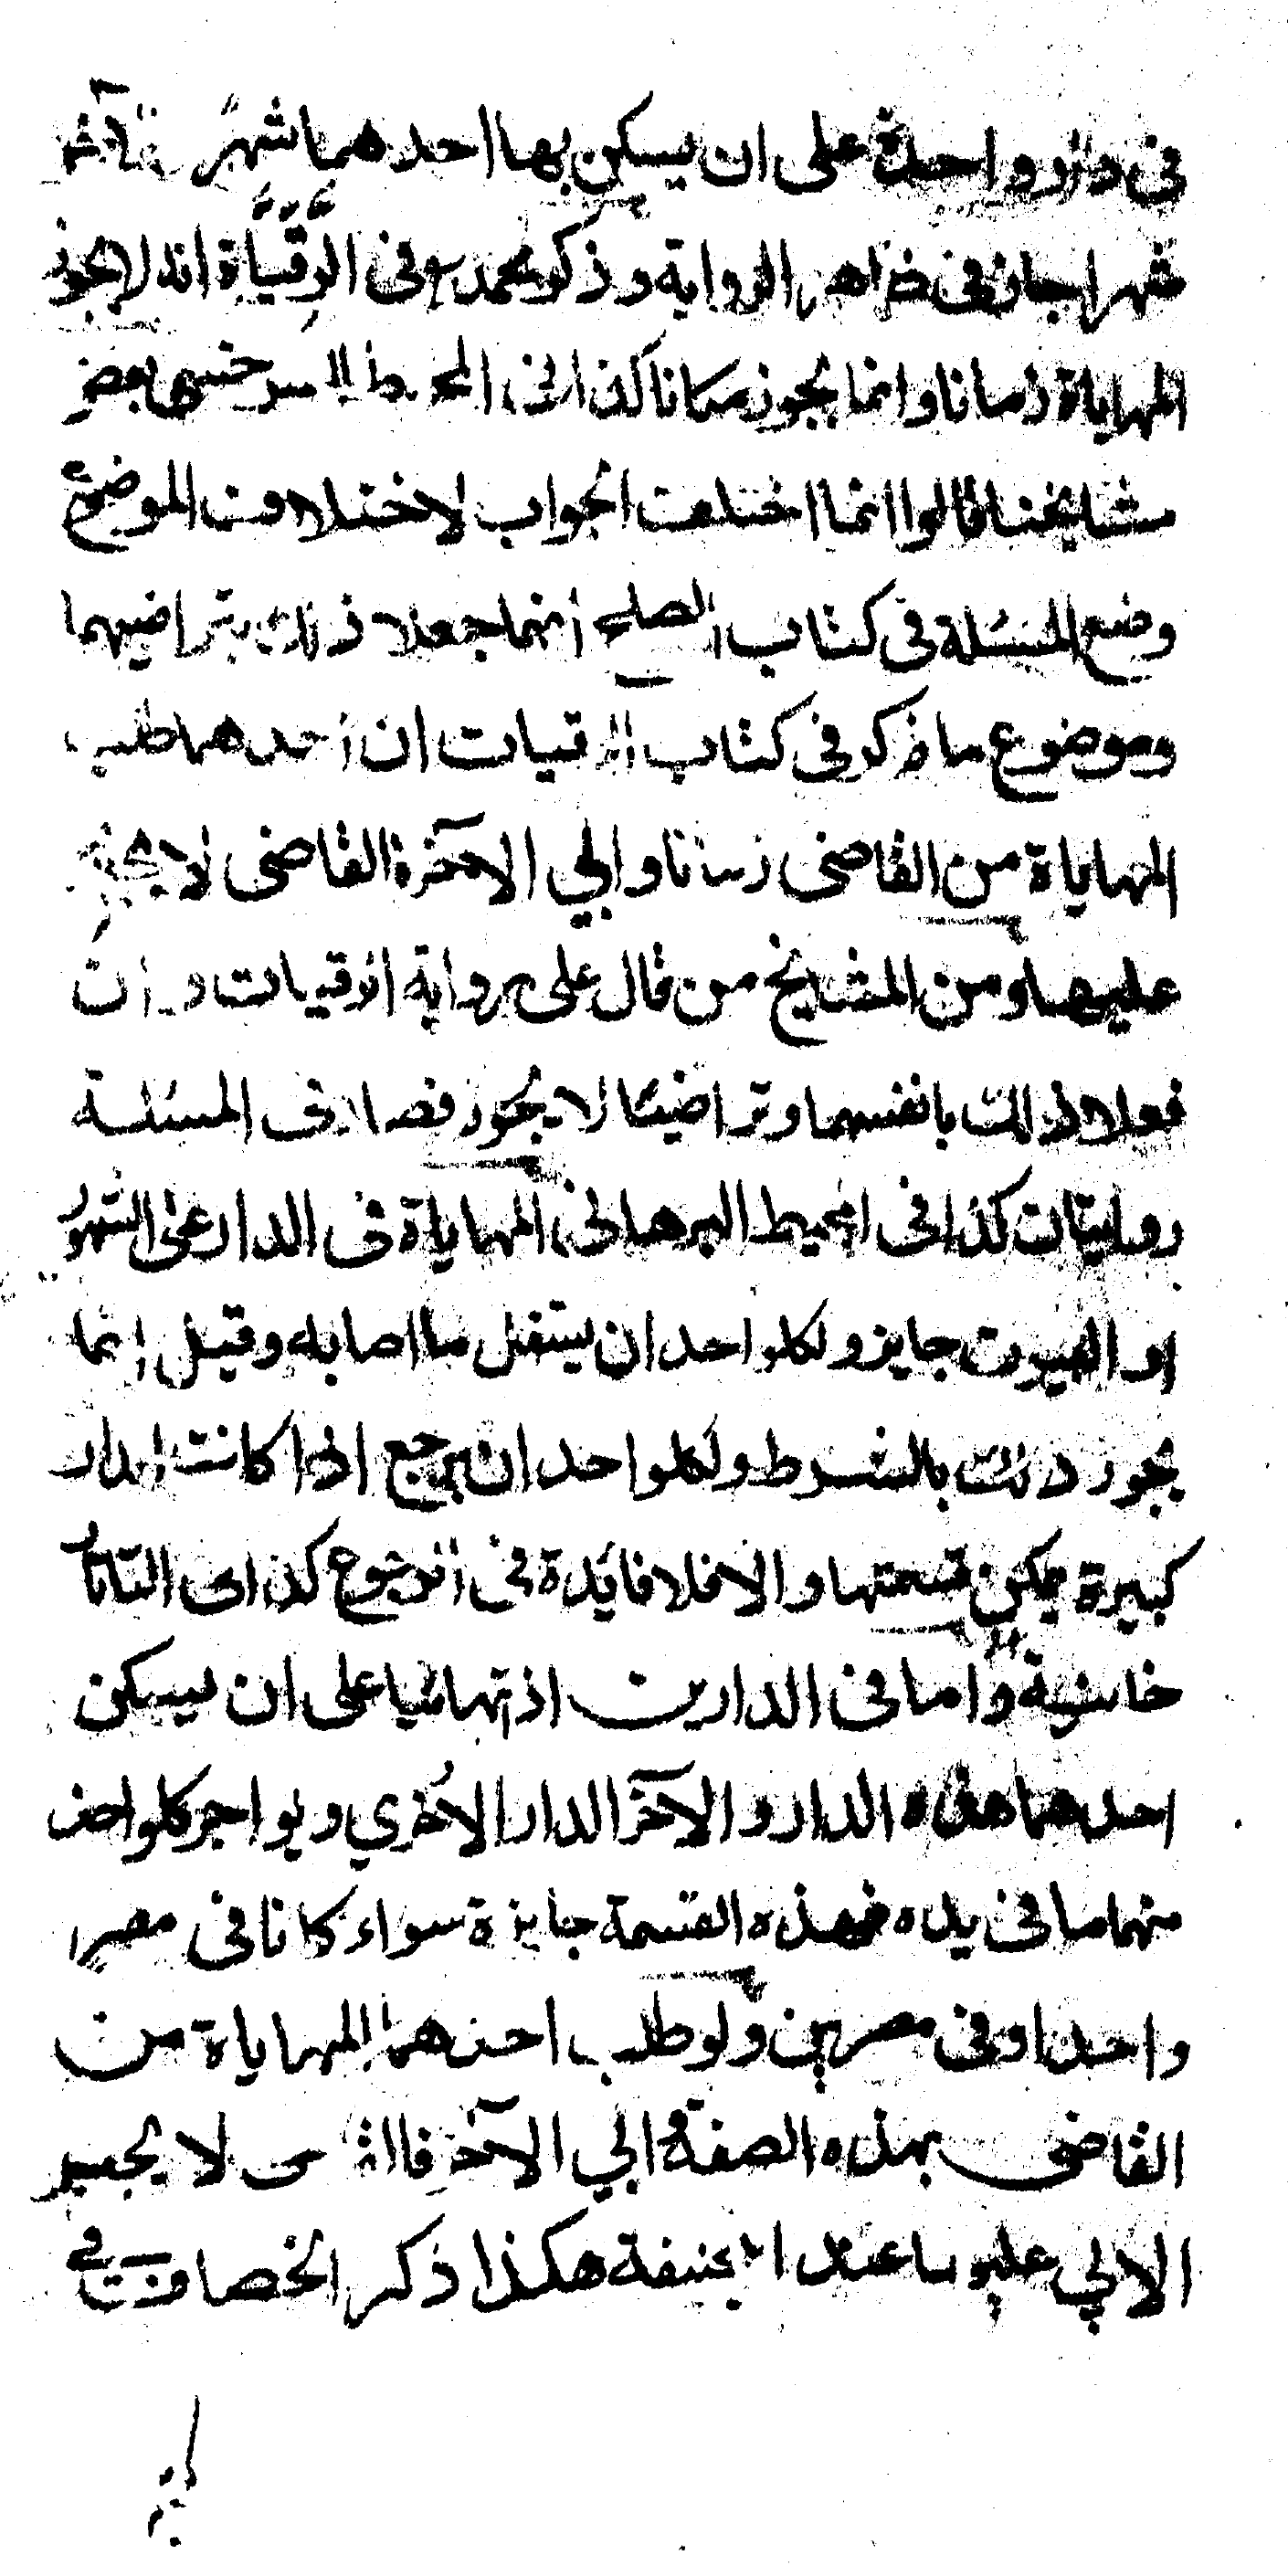 في دار واحدة على ان يسكن بها احدهما شهرا
شهرا جاز في ظاهر الرواية وذكر محمد في الرقيات انه لا يجوز
المهاياة زمانا وانما يجوز مكانا كذا في المحيط السرخسي بعض
مشايخنا قالوا انما اختلف الجواب لاختلاف الموضوع
وضع المسئلة في كتاب الصلح انهما جعلا ذلك بتراضيهما
وموضوع ما ذكر في كتاب الرقيات ان احدهما طلب
المهاياة من القاضي زمانا وابي الآخر القاضي لا يجبر
عليها ومن المشايخ من قال على رواية الرقيات وان
فعلا ذلك بانفسهما وتراضيا لا يجوز فصار في المسئلة
روايتان كذا في المحيط البرهاني المهاياة في الدار على الشهور
او البيوت جايز ولكل واحد ان يستغل ما اصابه وقيل انما
يجوز ذلك بالشرط ولكل واحد ان يرجع اذا كانت الدار
كبيرة يمكن قسمتها والا فلا فايدة في الرجوع كذا في التاتار
خانية واما في الدارين اذ تهائيا على ان يسكن
احدهما هذه الدار والآخر الدار الاخري ويواجر كل واحد
منهما ما في يده فهذه القسمة جايزة سواء كانا في مصر
واحد او في مصرين ولو طلب احدهما المهاياة من
القاضي بهذه الصفة وابي الآخر فالقاضي لا يجبر
الابي عليها عند ابي حنيفة هكذا ذكر الخصاف في